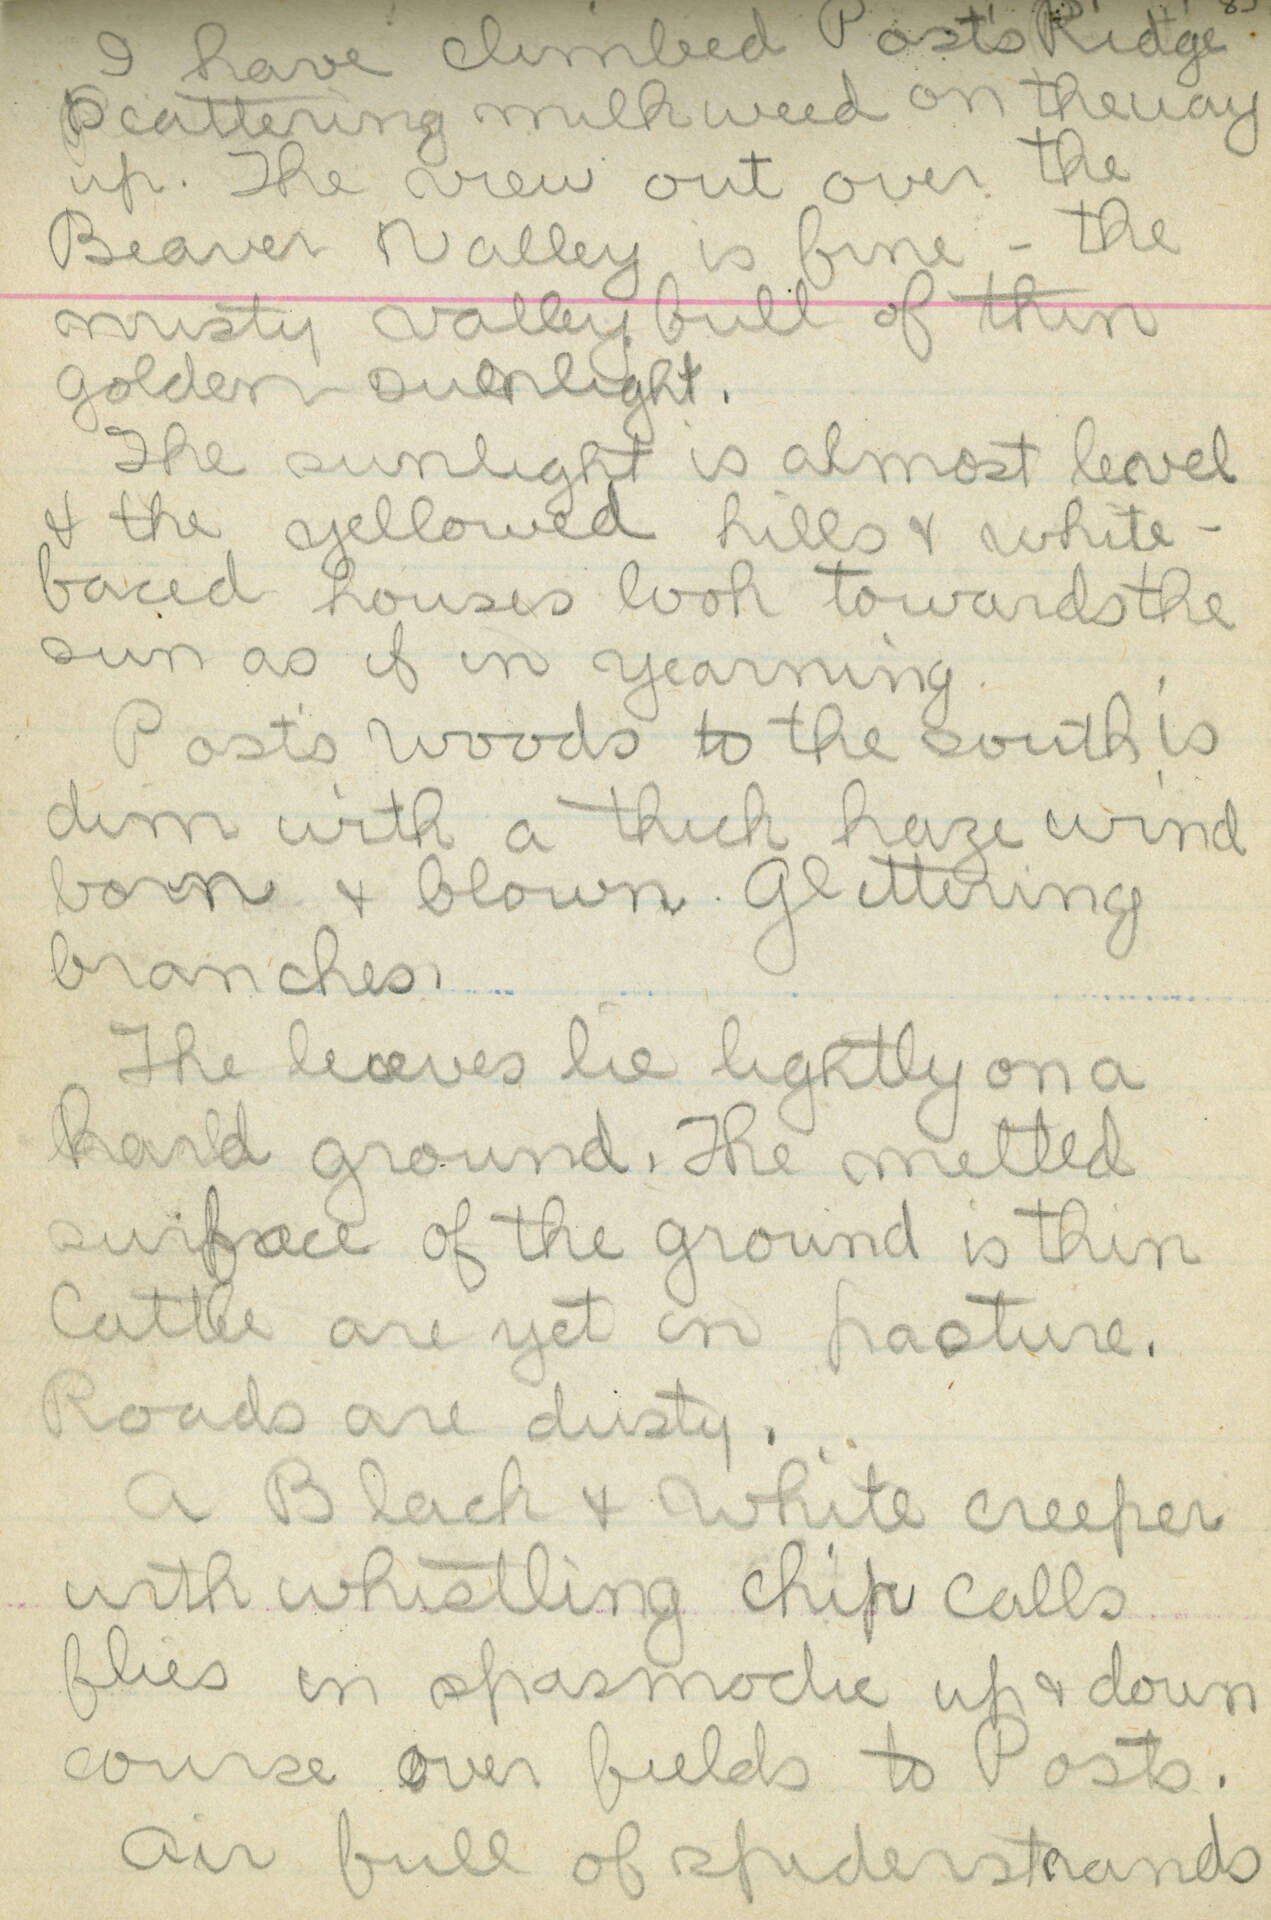 I have climbed Post's Ridge
scattering milkweed on the way
up. The view out over the
Beaver Valley is fine - the
misty valley full of thin
golden sunlight.
The sunlight is almost level
& the yellowed hills & white-
faced houses look towards the
sun as if in yearning.
Post's woods to the south is
dim with a thick haze wind
born & blown. Glittering
branches.
The leaves lie lightly on a
hard ground. The melted
surface of the ground is thin
Cattle are yet in pasture.
Roads are dusty.
A Black & White creeper
with whistling chip calls
flies in spasmodic up & down
course over fields to Posts.
Air full of spiderstrands